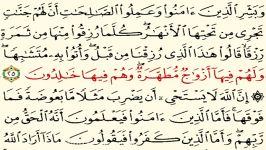 وَبَشِّرِ الَّذِينَ ءَامَنُوا وَعَمِلُوا الصَّالِحَاتِ أَنَّ لَهُمْ جَنَّاتٍ
تَجْرِي مِن تَحْتِهَا الْأَنْهَارُ كُلَّمَا رُزِقُوا مِنْهَا مِن ثَمَرَةٍ
رِّزْقًا قَالُوا هَٰذَا الَّذِي رُزِقْنَا مِن قَبْلُ وَأُتُوا بِهِ مُتَشَابِهًا
وَلَهُمْ فِيهَا أَزْوَاجٌ مُّطَهَّرَةٌ وَهُمْ فِيهَا خَالِدُونَ ٢٥
إِنَّ اللَّهَ لَا يَسْتَحْيِ أَن يَضْرِبَ مَثَلًا مَّا بَعُوضَةً فَمَا
فَوْقَهَا فَأَمَّا الَّذِينَ ءَامَنُوا فَيَعْلَمُونَ أَنَّهُ الْحَقُّ مِن
رَّبِّهِمْ وَأَمَّا الَّذِينَ كَفَرُوا فَيَقُولُونَ مَاذَا أَرَادَ اللَّهُ